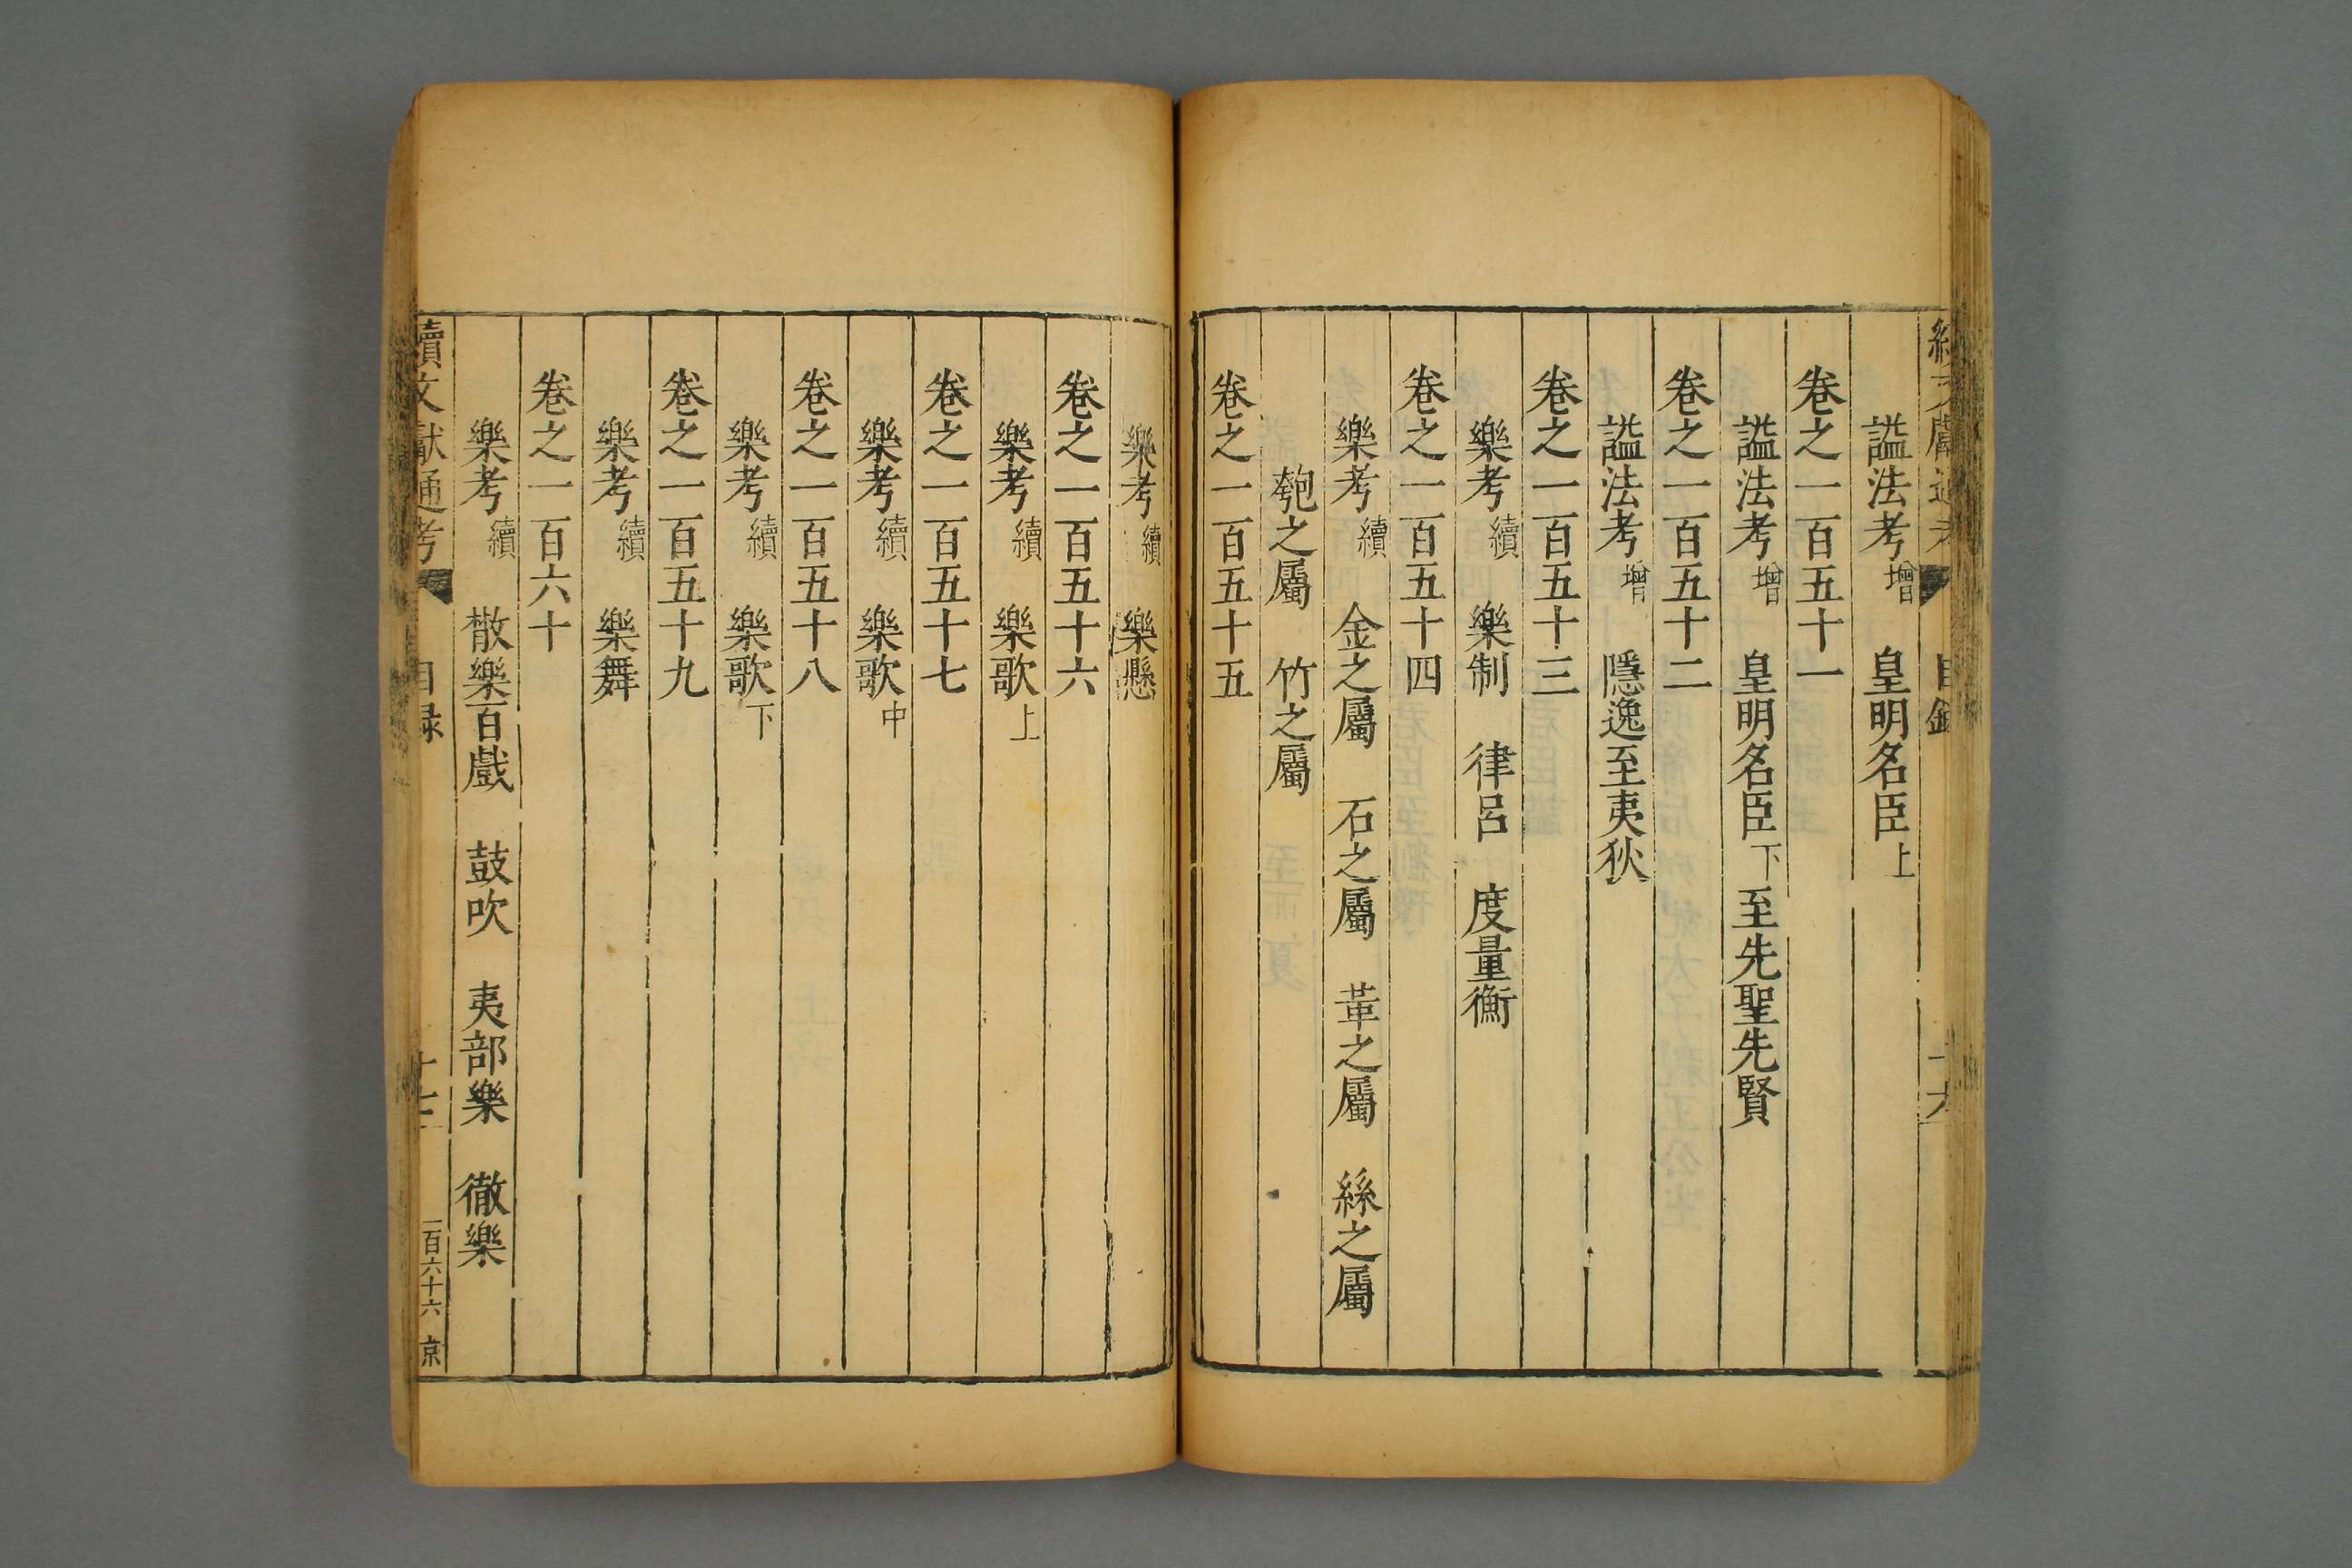 諡法考增 皇明名臣上
卷之一百五十一
諡法考增 皇明名臣下至先聖先賢
卷之一百五十二
諡法考增 隱逸至夷狄
卷之一百五十三
樂考續 樂制 律呂 度量衡
卷之一百五十四
樂考續 金之屬 石之屬 革之屬 絲之屬
匏之屬 竹之屬
卷之一百五十五
樂考續 樂懸
卷之一百五十六
樂考續 樂歌上
卷之一百五十七
樂考續 樂歌中
卷之一百五十八
樂考續 樂歌下
卷之一百五十九
樂考續 樂舞
卷之一百六十
樂考續 散樂百戲 鼓吹 夷部樂 徹樂
續文獻通考 目録 十七 一百六十六 京